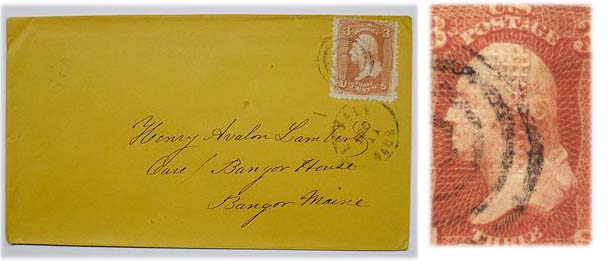 3 3
THREE
CENTS
U S
Henry Avalon Lambert
Care / Bangor House
Bangor Maine
U.S.
POSTAGE
3 3
THREE
S